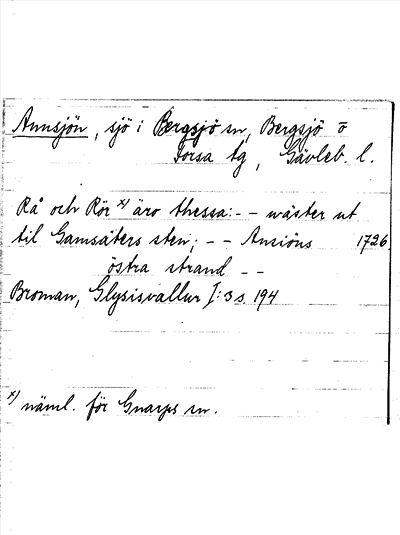 Annsjön, sjö i Bergsjö sn, Bergsjö o
Forsa tg, Gävleb. l.
Rå och Rör x) äro thessa: - - wäster ut
til Gamsäters sten; - - Ansiöns 1726
östra strand - -
Broman, Glysisvallur I: 3 s. 194
x) näml. för Gnarps sn.